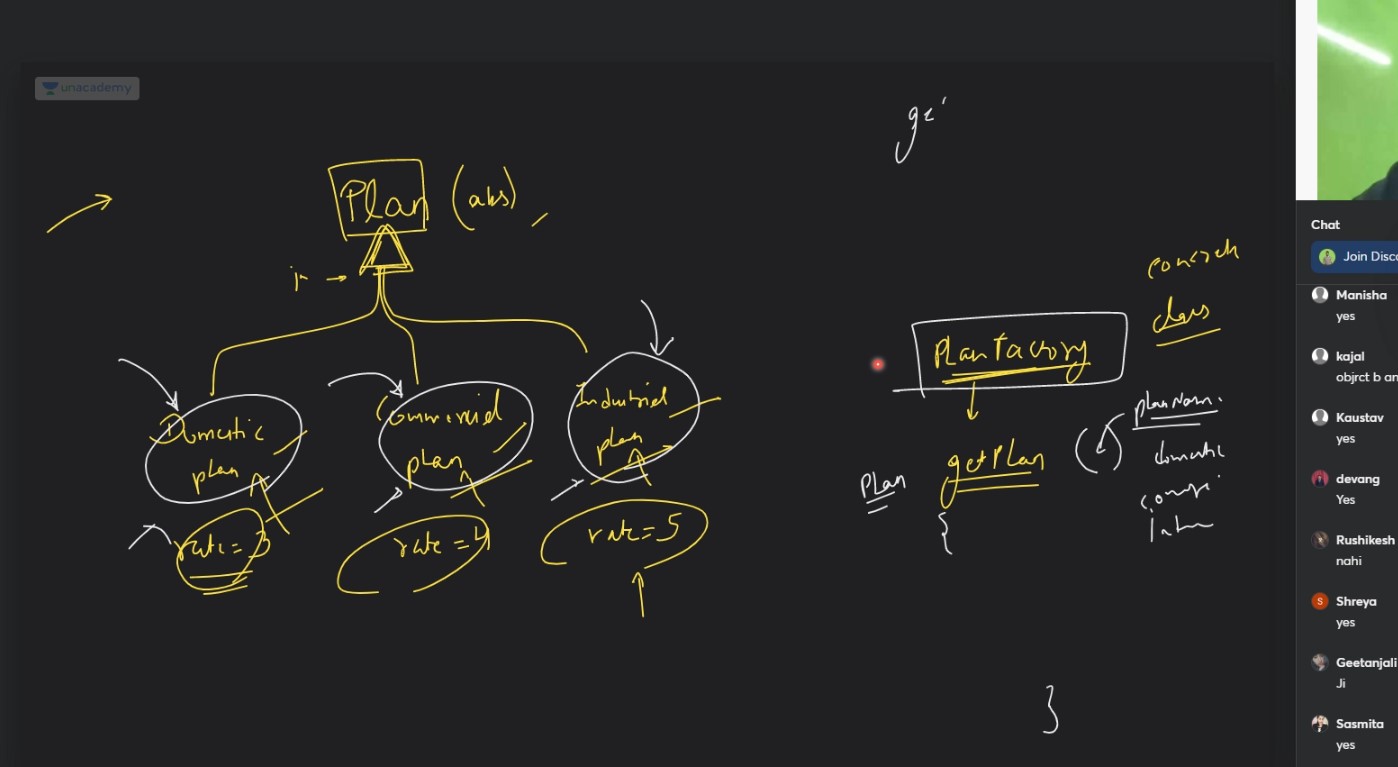 unacademy
Plan (abs)
Domestic
plan
rate = 3
Commercial
plan
rate = 4
Industrial
plan
rate = 5
concrete
class
PlanFactory
Plan getPlan ( )
planNam.
domestic
{
}
Chat
Join Disc
Manisha
yes
kajal
objrct b an
Kaustav
yes
devang
Yes
Rushikesh
nahi
S Shreya
yes
Geetanjali
Ji
Sasmita
yes